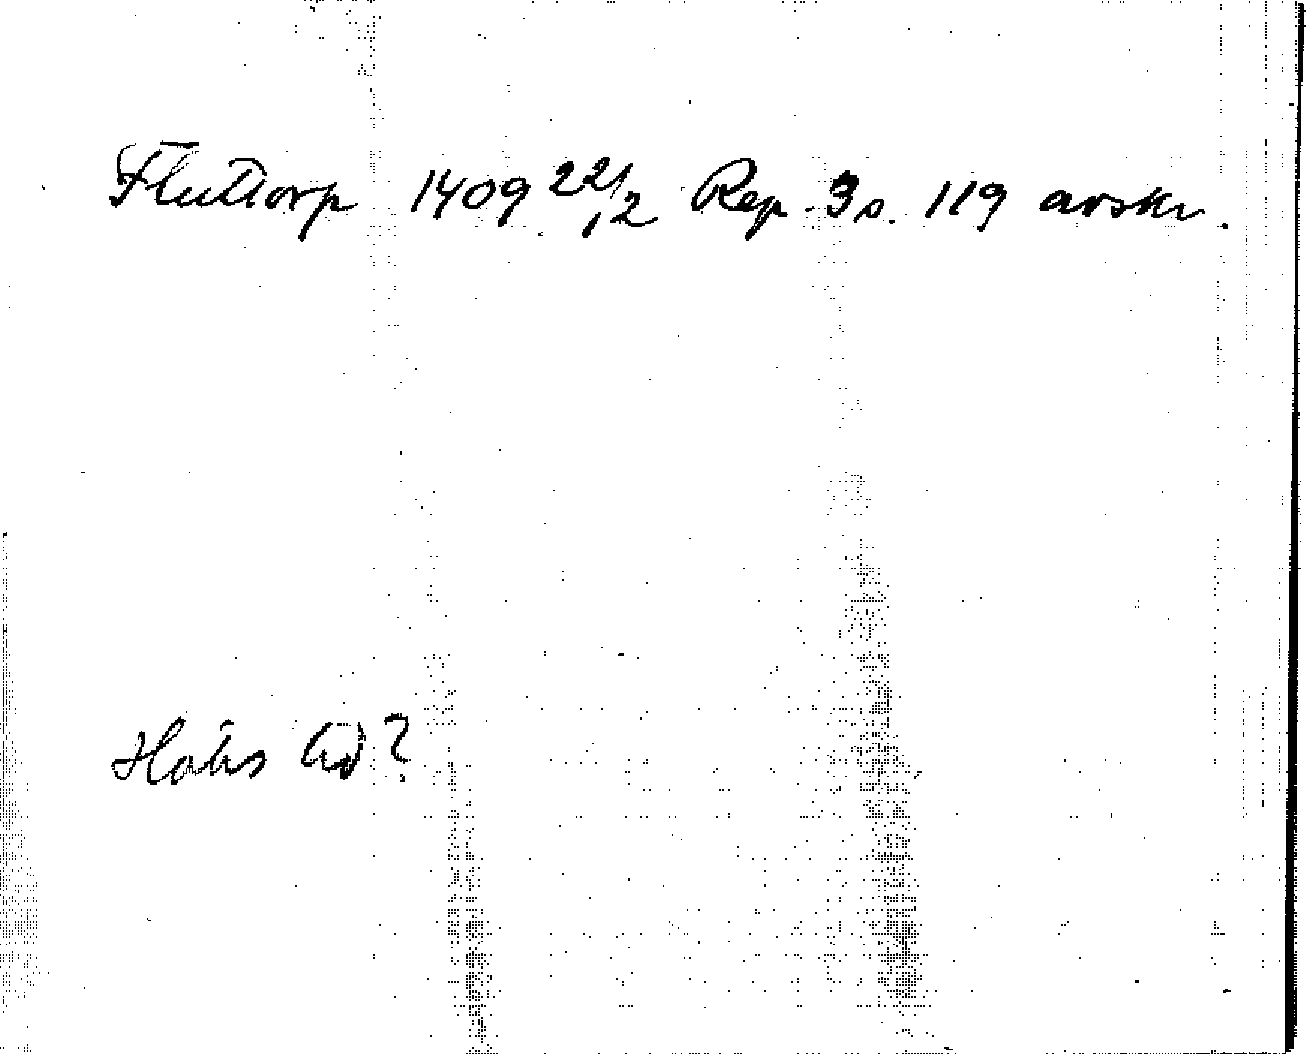 Fluttorp 1409 22/2 Rep. 3 s. 119 avskr.
Håbs hd?